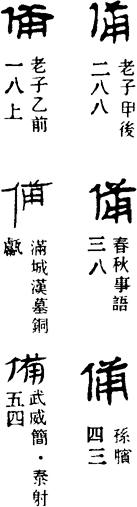 備
老子甲後
二八八
備
春秋事語
三八
備
孫臏
四三
備
老子乙前
一八上
備
滿城漢墓銅
甗
備
武威簡·泰射
五四